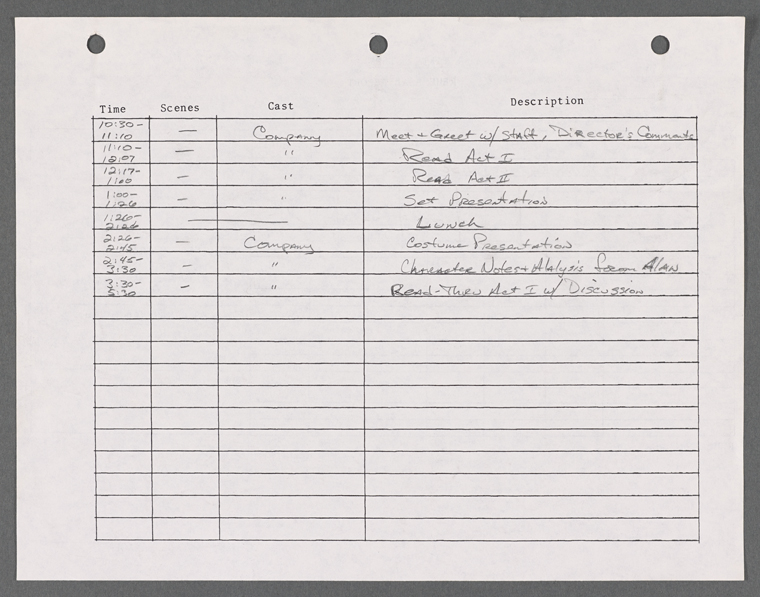 Time Scenes Cast Description
10:30-
11:10 — Company Meet + Greet w/ Staff, Director's Comments
11:10-
12:07 — " Read Act I
12:17-
1:00 — " Read Act II
1:00-
1:26 — " Set Presentation
1:26-
2:26 —— Lunch
2:26-
2:45 — Company Costume Presentation
2:45-
3:30 — " Character Notes + Analysis from Alan
3:30-
5:30 — " Read-Thru Act I w/ Discussion